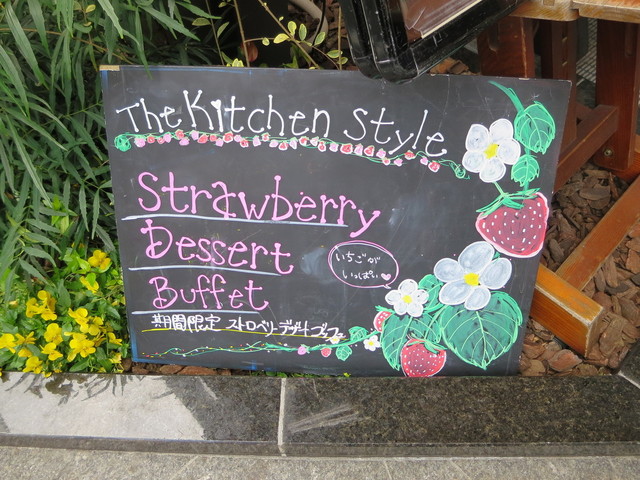 The Kitchen Style
Strawberry
Dessert
Buffet
いちごが
いっぱい
期間限定 ストロベリーデザートブッフェ